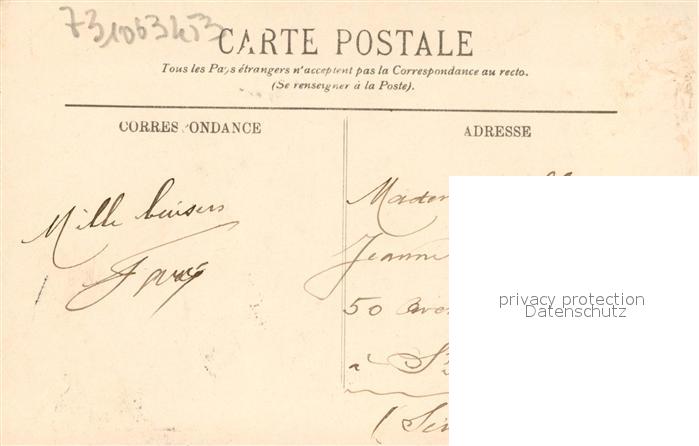 731063453
CARTE POSTALE
Tous les Pays étrangers n'acceptent pas la Correspondance au recto.
(Se renseigner à la Poste).
CORRESPONDANCE
Mille baisers
ADRESSE
Jeanne
50
à
privacy protection
Datenschutz